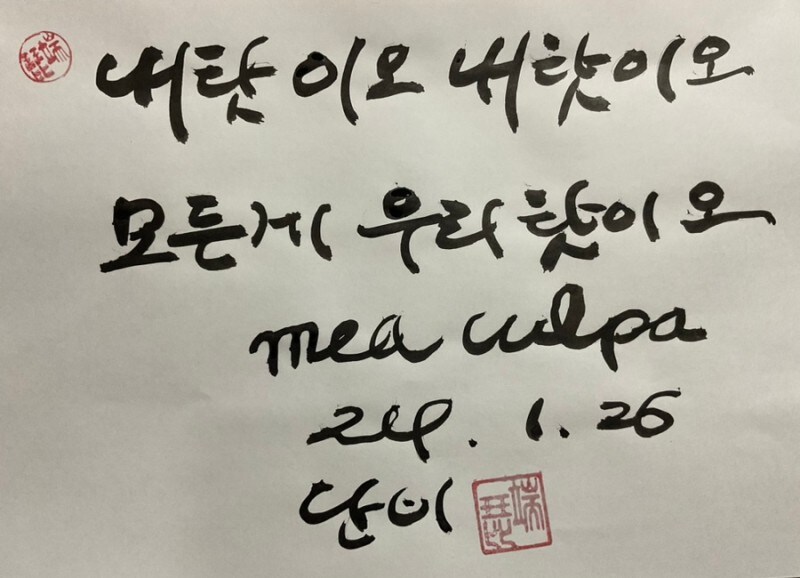 내탓이오 내탓이오
모든게 우리 탓이오
mea culpa
24. 1. 26
단비